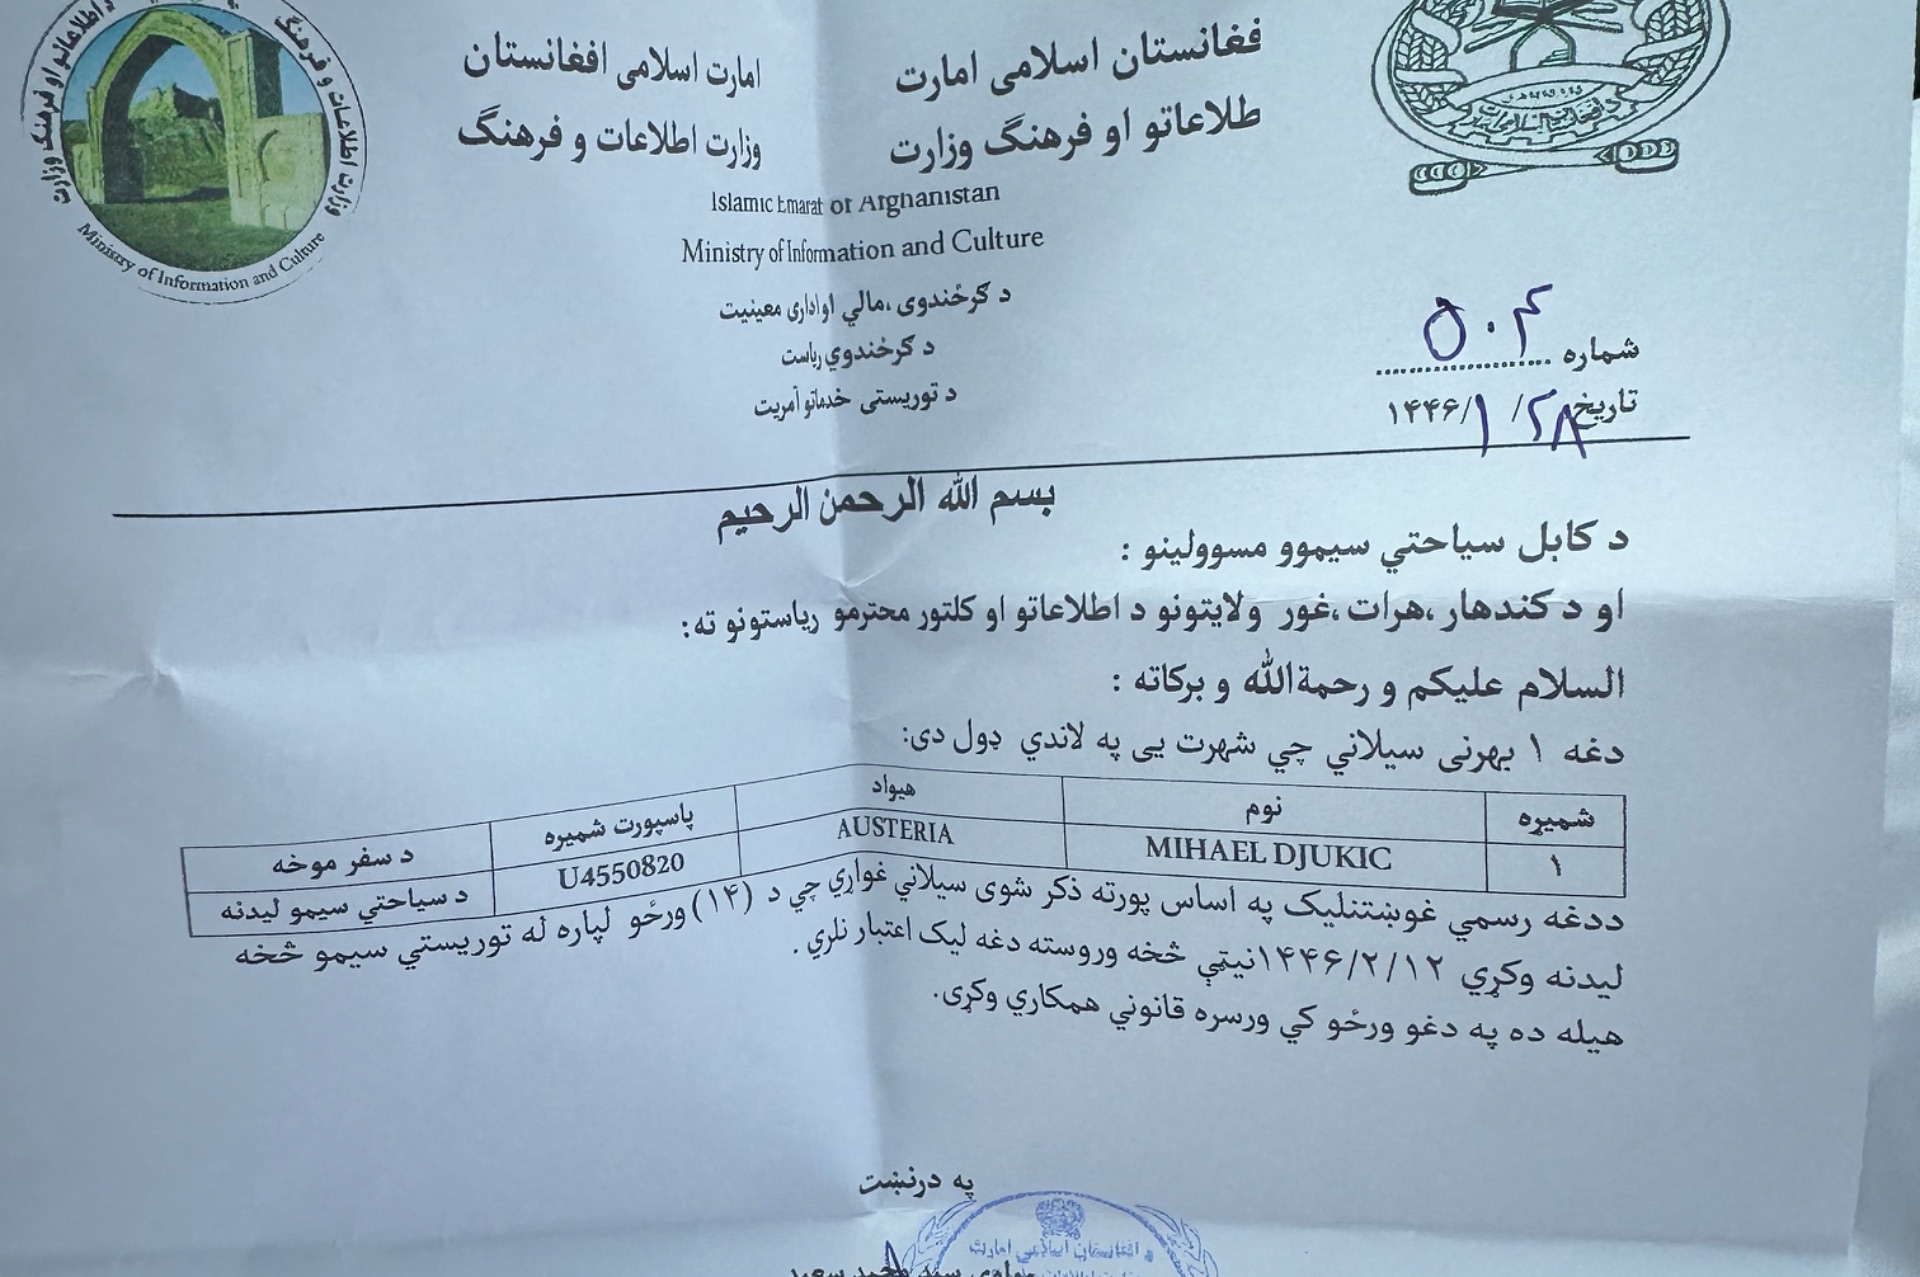 وزارت اطلاعات و فرهنگ
Ministry of Information and Culture
فغانستان اسلامی امارت
امارت اسلامی افغانستان
طلاعاتو او فرهنگ وزارت
وزارت اطلاعات و فرهنگ
Islamic Emarat of Afghanistan
Ministry of Information and Culture
د ګرځندوی ،مالي اواداری معینیت
د ګرځندوي ریاست
د توریستی خدماتو آمریت
شماره ۵۰۴
تاریخ ۲۸/ ۱/۱۴۴۶
بسم الله الرحمن الرحیم
د کابل سیاحتي سیموو مسوولینو :
او د کندهار ،هرات ،غور ولایتونو د اطلاعاتو او کلتور محترمو ریاستونو ته:
السلام علیکم و رحمةالله و برکاته :
دغه ۱ بهرنی سیلاني چي شهرت یی په لاندي ډول دی:
شمیړه نوم هیواد پاسپورت شمیره د سفر موخه
۱ MIHAEL DJUKIC AUSTERIA U4550820 د سیاحتي سیمو لیدنه
ددغه رسمي غوښتنلیک په اساس پورته ذکر شوی سیلاني غواړي چي د (۱۴) ورځو لپاره له توریستي سیمو څخه
لیدنه وکړي ۱۴۴۶/۲/۱۲نیټې څخه وروسته دغه لیک اعتبار نلري .
هیله ده په دغو ورځو کي ورسره قانوني همکاري وکړی.
په درنښت